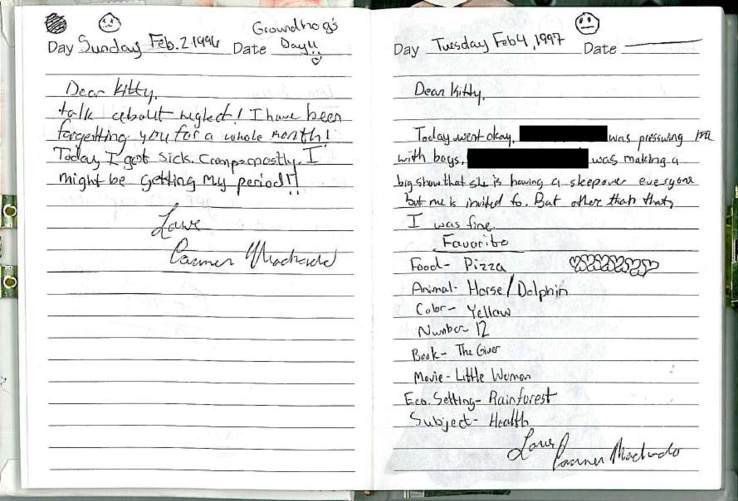 Groundhog's
Day Sunday Feb. 2 1996 Date Day!!
Dear Kitty,
talk about neglect! I have been
forgetting you for a whole month!
Today I got sick. Cramps mostly. I
might be getting my period!!
Love
Carmen Machado
Day Tuesday Feb 4, 1997 Date
Dear Kitty,
Today went okay, was pressuring me
with boys, was making a
big show that she is having a sleepover everyone
but me is invited to. But other than that,
I was fine.
Favorite
Food- Pizza
Animal- Horse/Dolphin
Color- Yellow
Number- 12
Book- The Giver
Movie- Little Women
Eco. Setting- Rainforest
Subject- Health
Love
Carmen Machado